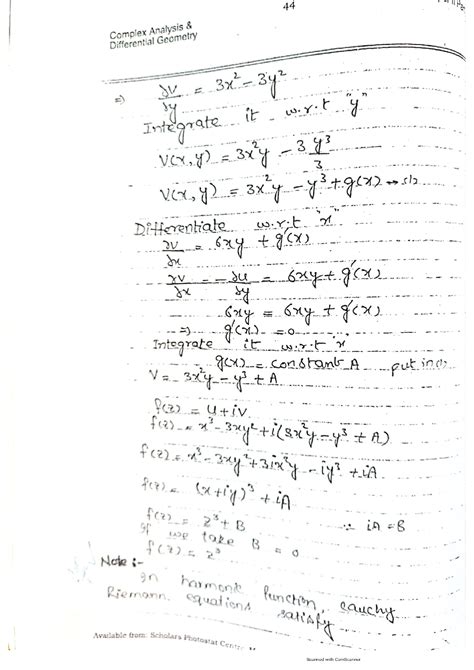 44
Complex Analysis &
Differential Geometry
⇒ ∂v/∂y = 3x² - 3y²
Integrate it w.r.t "y"
V(x,y) = 3x²y - 3 y³/3
V(x,y) = 3x²y - y³ + g(x)
Differentiate w.r.t "x"
∂v/∂x = 6xy + g'(x)
∂v/∂x = -∂u/∂y = 6xy + g'(x)
6xy = 6xy + g'(x)
⇒ g'(x) = 0
Integrate it w.r.t "x"
g(x) = constant A put in
V = 3x²y - y³ + A
f(z) = u + iv
f(z) = x³ - 3xy² + i(3x²y - y³ + A)
f(z) = x³ - 3xy² + 3ix²y - iy³ + iA
f(z) = (x + iy)³ + iA
f(z) = z³ + B ∵ iA = B
if we take B = 0
f(z) = z³
Note :-
In harmonic function, cauchy
Riemann equations satisfy
Available from: Scholars Photostat
Scanned with CamScanner